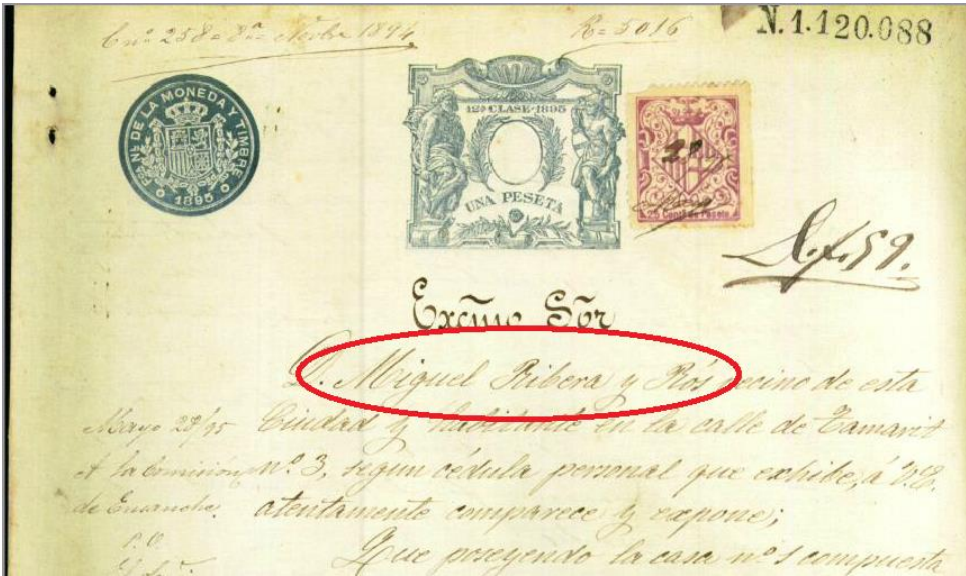 R=5016
N.1.120.088
FCA NL DE LA MONEDA Y TIMBRE
1895
12ª CLASE-1895
UNA PESETA
25 Cents de Peseta
Excmo Sōr
D. Miguel Ribera y Rós vecino de esta
Ciudad y habitante en la calle de Tamarit
nº. 3, segun cédula personal que exhibe, á V.E.
atentamente comparece y expone;
Que poseyendo la casa nº 1 compuesta
Mayo 28/95
A la Comisión
de Ensanche.
P.O.